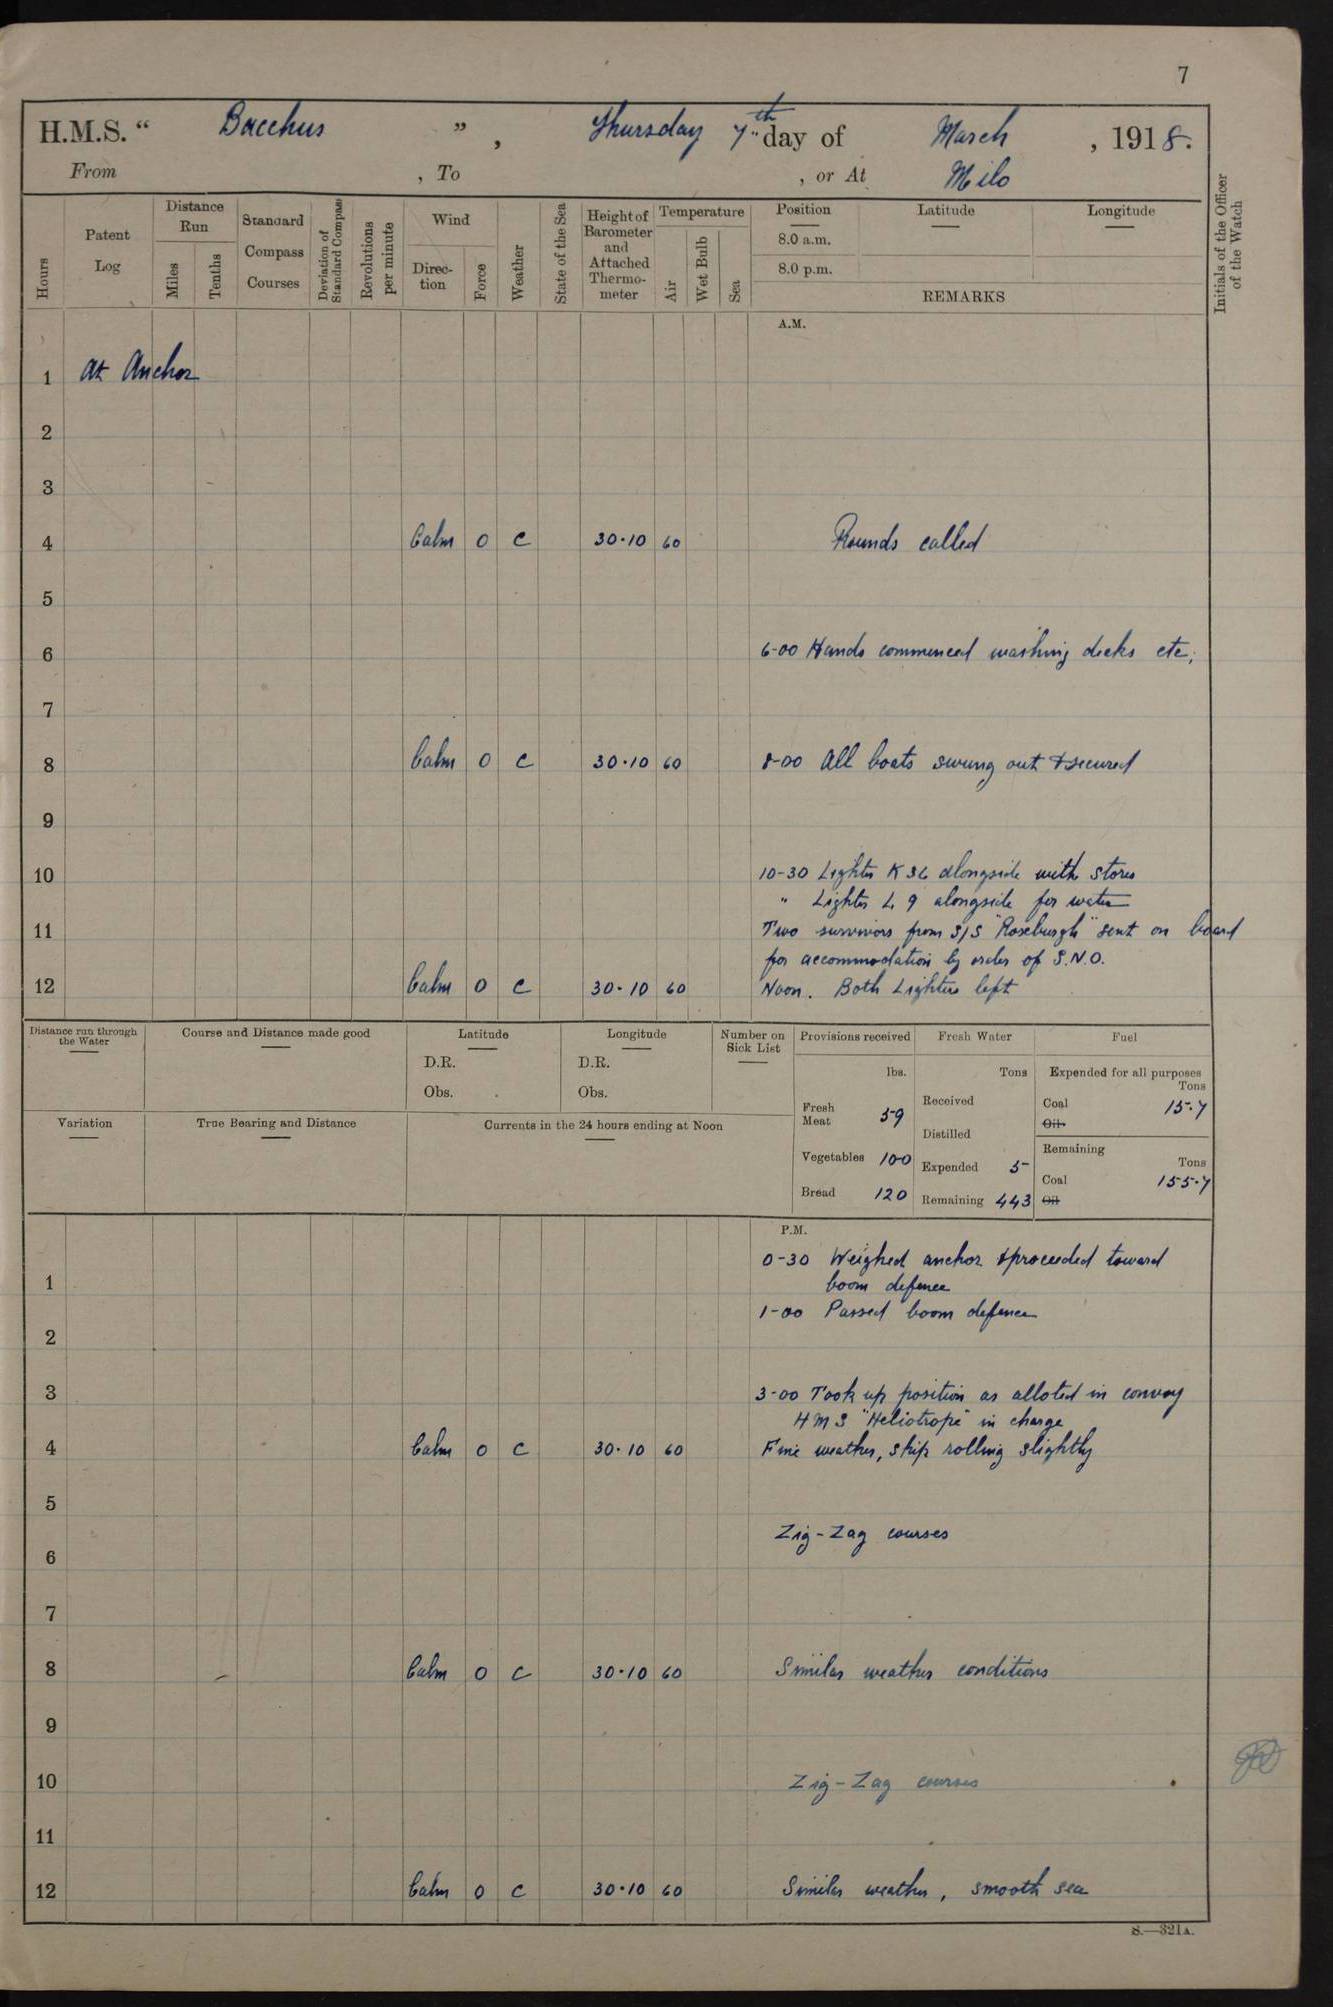 7
H.M.S. “ Bacchus ” , Thursday 7th day of March , 1918.
From , To , or At Milo
Hours
Patent Log
Distance Run
Miles
Tenths
Standard Compass Courses
Deviation of Standard Compass
Revolutions per minute
Wind
Direc-tion
Force
Weather
State of the Sea
Height of Barometer and Attached Thermo-meter
Temperature
Air
Wet Bulb
Sea
Position Latitude Longitude
8.0 a.m.
8.0 p.m.
REMARKS
Initials of the Officer of the Watch
A.M.
1 At Anchor
2
3
4 Calm 0 C 30·10 60 Rounds called
5
6 6-00 Hands commenced washing decks etc,
7
8 Calm 0 C 30·10 60 8-00 All boats swung out & secured
9
10 10-30 Lighter K 36 alongside with stores
" Lighter L 9 alongside for water
11 Two survivors from S/S "Roseburgh" sent on board
for accommodation by order of S.N.O.
12 Calm 0 C 30·10 60 Noon. Both Lighters left
Distance run through the Water
Course and Distance made good
Latitude
D.R.
Obs.
Longitude
D.R.
Obs.
Number on Sick List
Provisions received
lbs.
Fresh Meat 59
Vegetables 100
Bread 120
Fresh Water
Tons
Received
Distilled
Expended 5
Remaining 443
Fuel
Expended for all purposes
Tons
Coal 15·7
Oil
Remaining
Tons
Coal 155·7
Oil
Variation
True Bearing and Distance
Currents in the 24 hours ending at Noon
P.M.
0-30 Weighed anchor & proceeded toward
1 boom defence
1-00 Passed boom defence
2
3 3-00 Took up position as alloted in convoy
H M S "Heliotrope" in charge
4 Calm 0 C 30·10 60 Fine weather, ship rolling slightly
5
Zig-Zag courses
6
7
8 Calm 0 C 30·10 60 Similar weather conditions
9
10 Zig-Zag courses
11
12 Calm 0 C 30·10 60 Similar weather, smooth sea
S.—321A.